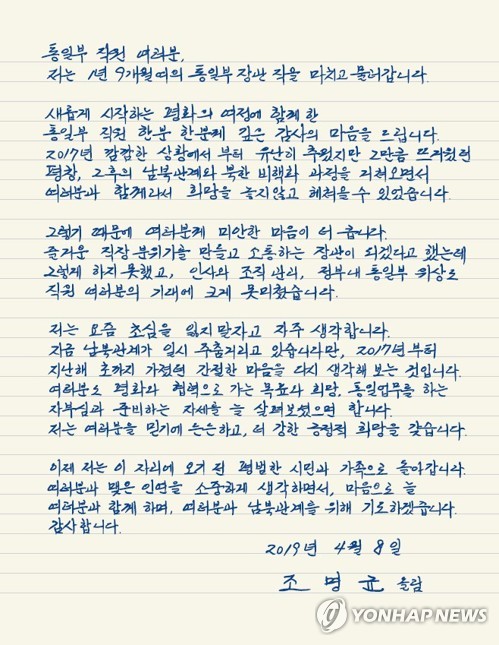 통일부 직원 여러분,
저는 1년 9개월여의 통일부장관 직을 마치고 물러갑니다.
새롭게 시작하는 평화의 여정에 함께 한
통일부 직원 한분 한분께 깊은 감사의 마음을 드립니다.
2017년 깜깜한 상황에서 부터 유난히 추웠지만 그만큼 뜨거웠던
평창, 그후의 남북관계와 북한 비핵화 과정을 거쳐오면서
여러분과 함께라서 희망을 놓지않고 헤쳐올 수 있었습니다.
그렇기 때문에 여러분께 미안한 마음이 더 큽니다.
즐거운 직장 분위기를 만들고 소통하는 장관이 되겠다고 했는데
그렇게 하지 못했고, 인사와 조직 관리, 정부내 통일부 위상도
직원 여러분의 기대에 크게 못미쳤습니다.
저는 요즘 초심을 잃지 말자고 자주 생각합니다.
지금 남북관계가 일시 주춤거리고 있습니다만, 2017년부터
지난해 초까지 가졌던 간절한 마음을 다시 생각해 보는 것입니다.
여러분도 평화와 협력으로 가는 목표와 희망, 통일업무를 하는
자부심과 준비하는 자세를 늘 살펴보셨으면 합니다.
저는 여러분을 믿기에 든든하고, 더 강한 긍정적 희망을 갖습니다.
이제 저는 이 자리에 오기 전 평범한 시민과 가족으로 돌아갑니다.
여러분과 맺은 인연을 소중하게 생각하면서, 마음으로 늘
여러분과 함께 하며, 여러분과 남북관계를 위해 기도하겠습니다.
감사합니다.
2019년 4월 8일
조명균 올림
YONHAP NEWS